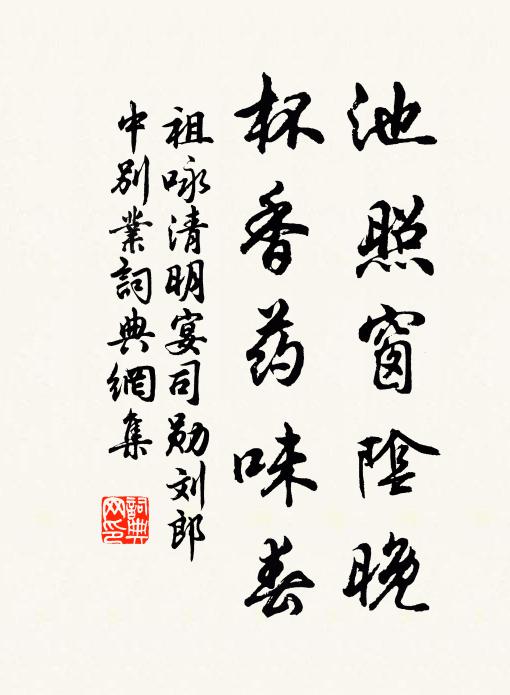 池照窗陰晚
杯香药味春
祖咏清明宴司勋刘郎
中别業詞典網集
詞典
网印